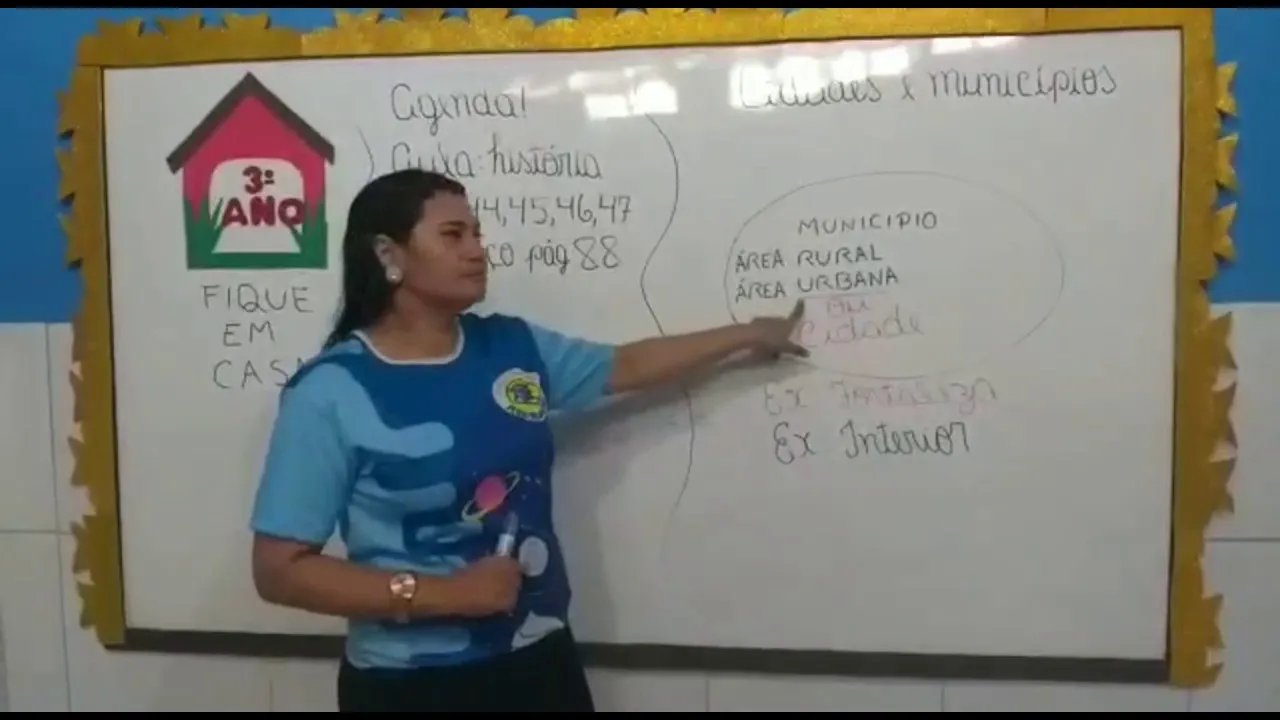 3º
ANO
FIQUE
EM
CASA
Agenda!
Aula: história
44,45,46,47
pág 88
Cidades e municípios
MUNICIPIO
ÁREA RURAL
ÁREA URBANA
ou
Cidade
Ex Fortaleza
Ex Interior